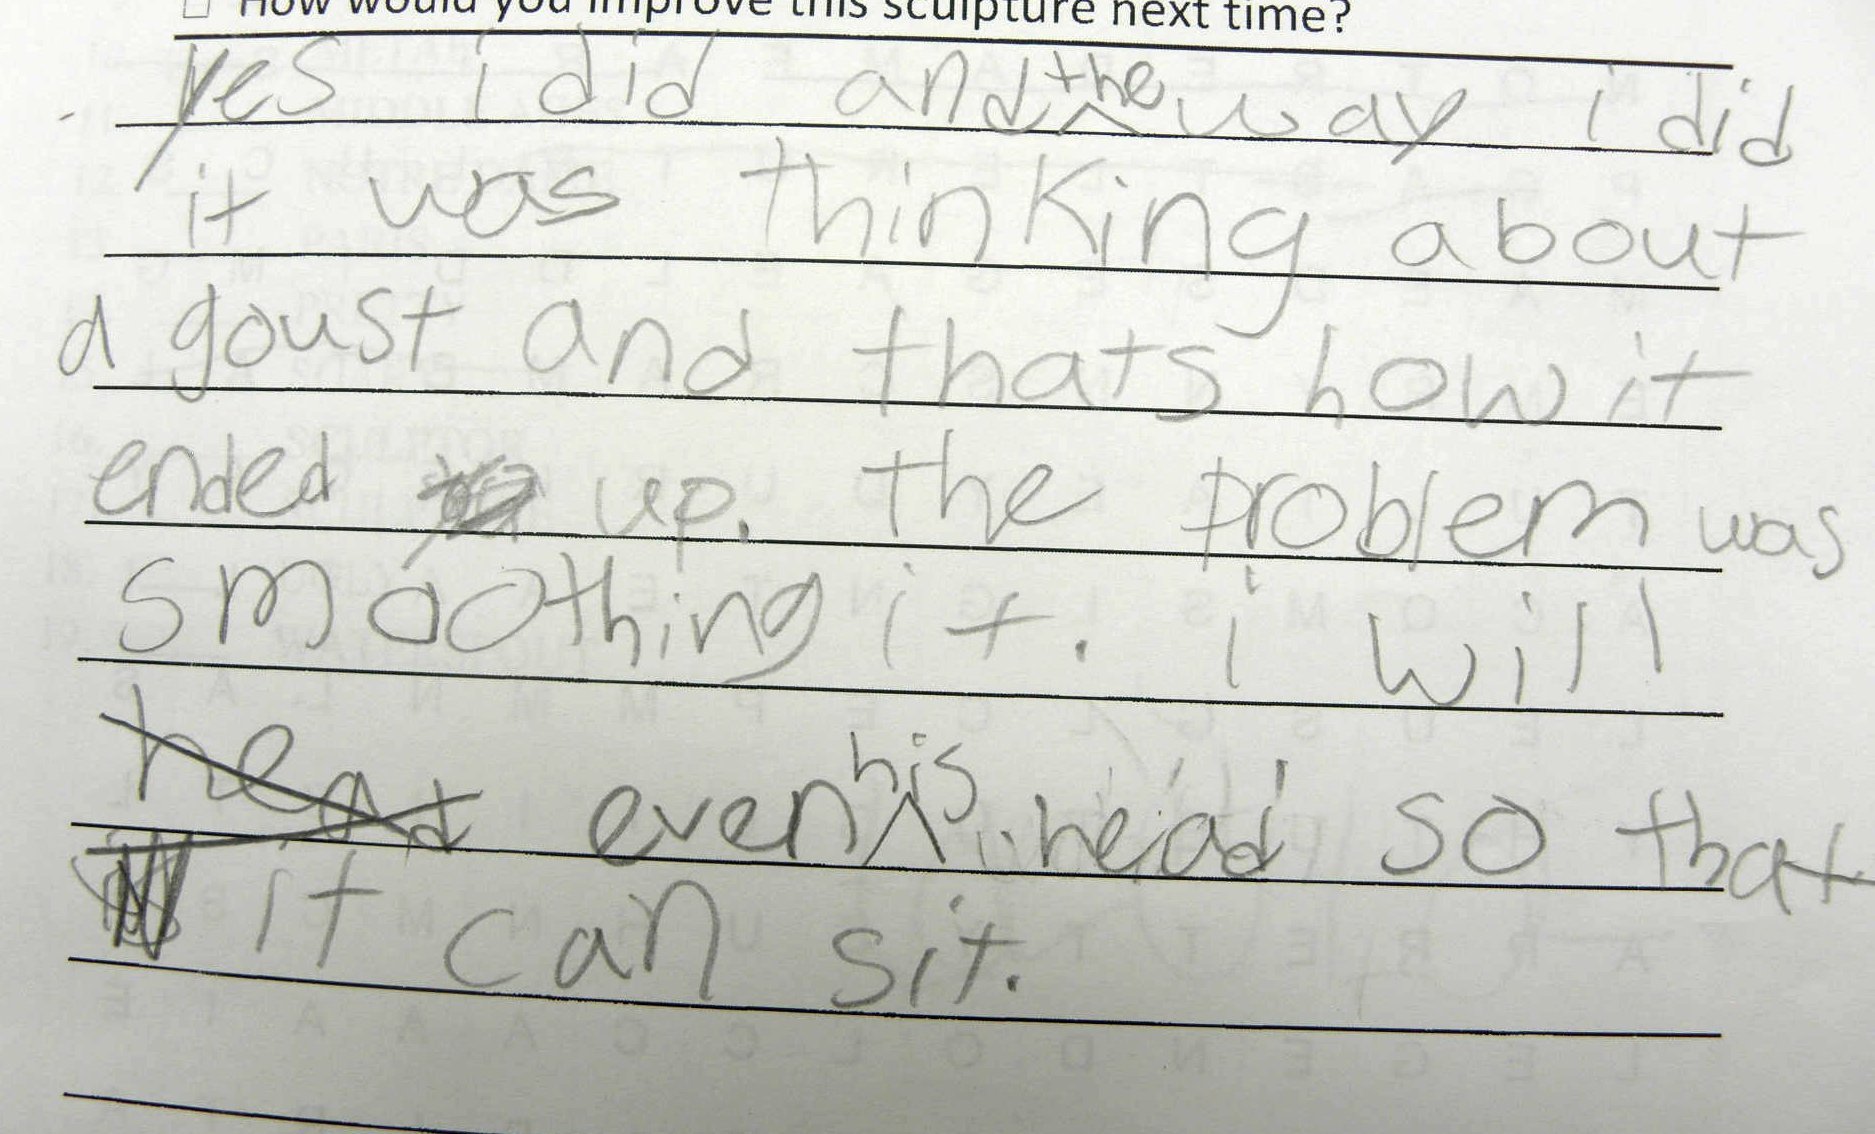 How would you improve this sculpture next time?
yes i did and the way i did
it was thinking about
a goust and thats how it
ended up. the problem was
smoothing it. i will
even his head so that
it can sit.